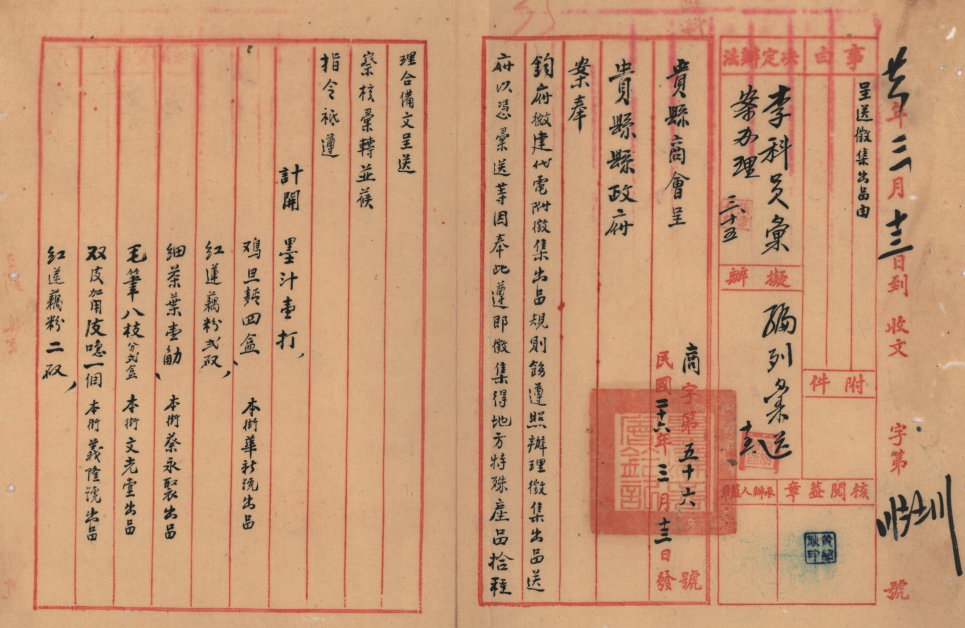 廿六年三月十三日到 收文 字第 號
事由
呈送徵集出品由
附件
決定辦法
李科員彙
案办理
三十五
擬辦
編列彙送
核閱蓋章
承辦人蓋章
貴縣商會呈
商字第五十六號
民國二十六年三月十三日發
貴縣縣政府
案奉
鈞府微建代電附徵集出品規則飭遵照辦理徵集出品送
府以憑彙送等因奉此遵即徵集得地方特殊產品拾種
理合備文呈送
察核彙轉並候
指令祗遵
計開
墨汁壹打
鸡旦麵四盒 本街華新號出品
红蓮藕粉弍砠
細茶葉壹觔 本街蔡永聚出品
毛筆八枝分弍盒 本街文光堂出品
双皮加用皮喼一個 本街義隆號出品
紅蓮藕粉二砠